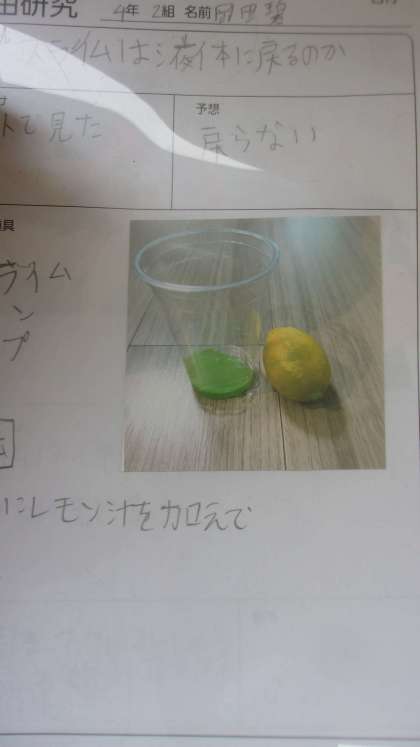 由研究 4年 2組 名前
スライムは液体に戻るのか
トで見た
予想
戻らない
具
ライム
ン
プ
にレモン汁を加えて